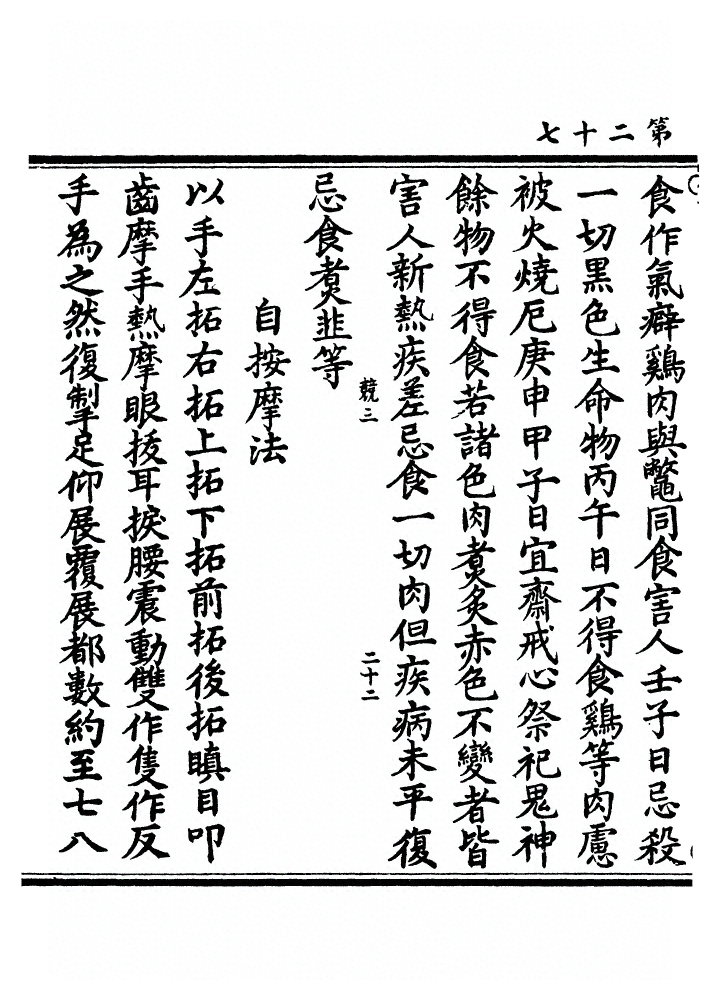 第二十七
食作氣癖鷄肉與鼈同食害人壬子日忌殺
一切黑色生命物丙午日不得食鷄等肉慮
被火燒厄庚申甲子日宜齋戒心祭祀鬼神
餘物不得食若諸色肉煑炙赤色不變者皆
害人新熱疾差忌食一切肉但疾病未平復
競三
二十二
忌食煑韭等
自按摩法
以手左拓右拓上拓下拓前拓後拓瞋目叩
齒摩手熱摩眼拔耳捩腰震動雙作隻作反
手為之然復掣足仰展覆展都數約至七八